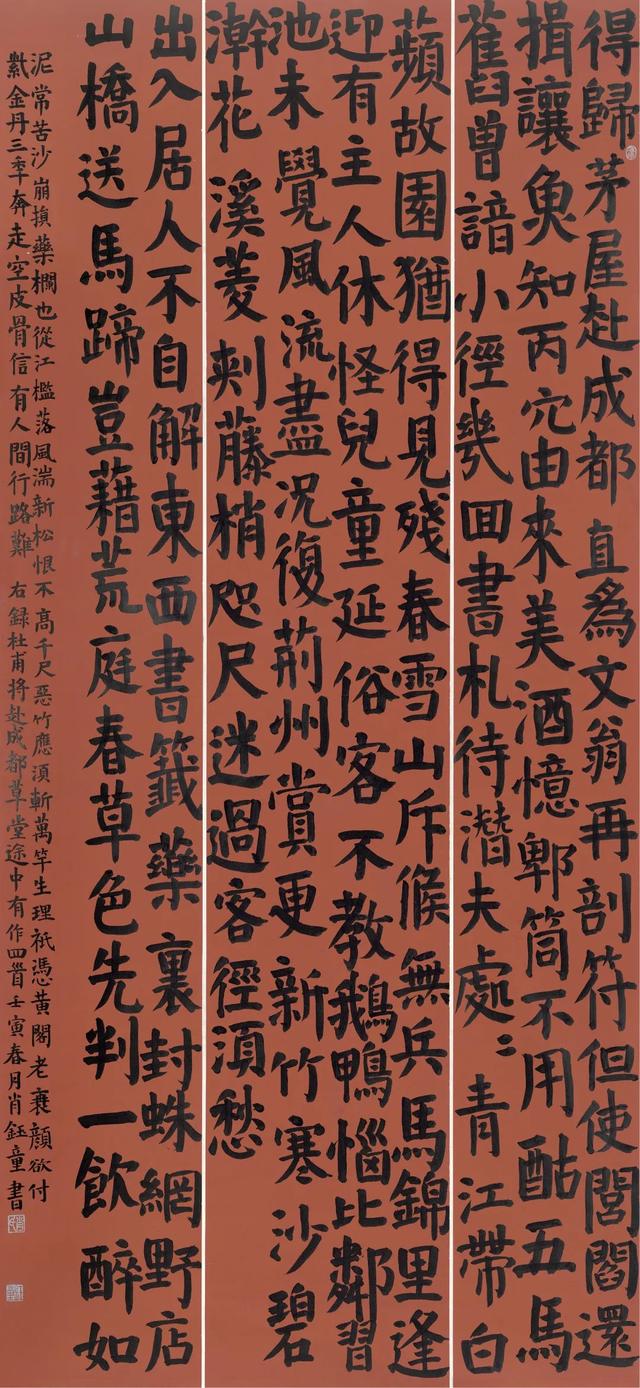 得歸茅屋赴成都直爲文翁再剖符但使閭閻還
揖讓魚知丙穴由來美酒憶郫筒不用酤五馬
舊曾諳小徑幾囬書札待潛夫處〻青江帶白
蘋故園猶得見殘春雪山斥候無兵馬錦里逢
迎有主人休怪兒童延俗客不教鵝鴨惱比鄰習
池未覺風流盡况復荊州賞更新竹寒沙碧
澣花溪菱刺藤梢咫尺迷過客徑須愁
出入居人不自解東西書籤藥裏封蛛網野店
山橋送馬蹄豈藉荒庭春草色先判一飲醉如
泥常苦沙崩損藥欄也從江檻落風湍新松恨不髙千尺惡竹應須斬萬竿生理祇憑黄閣老衰顔欲付
紫金丹三季奔走空皮骨信有人間行路難 右録杜甫將赴成都草堂途中有作四首壬寅春月肖鈺童書